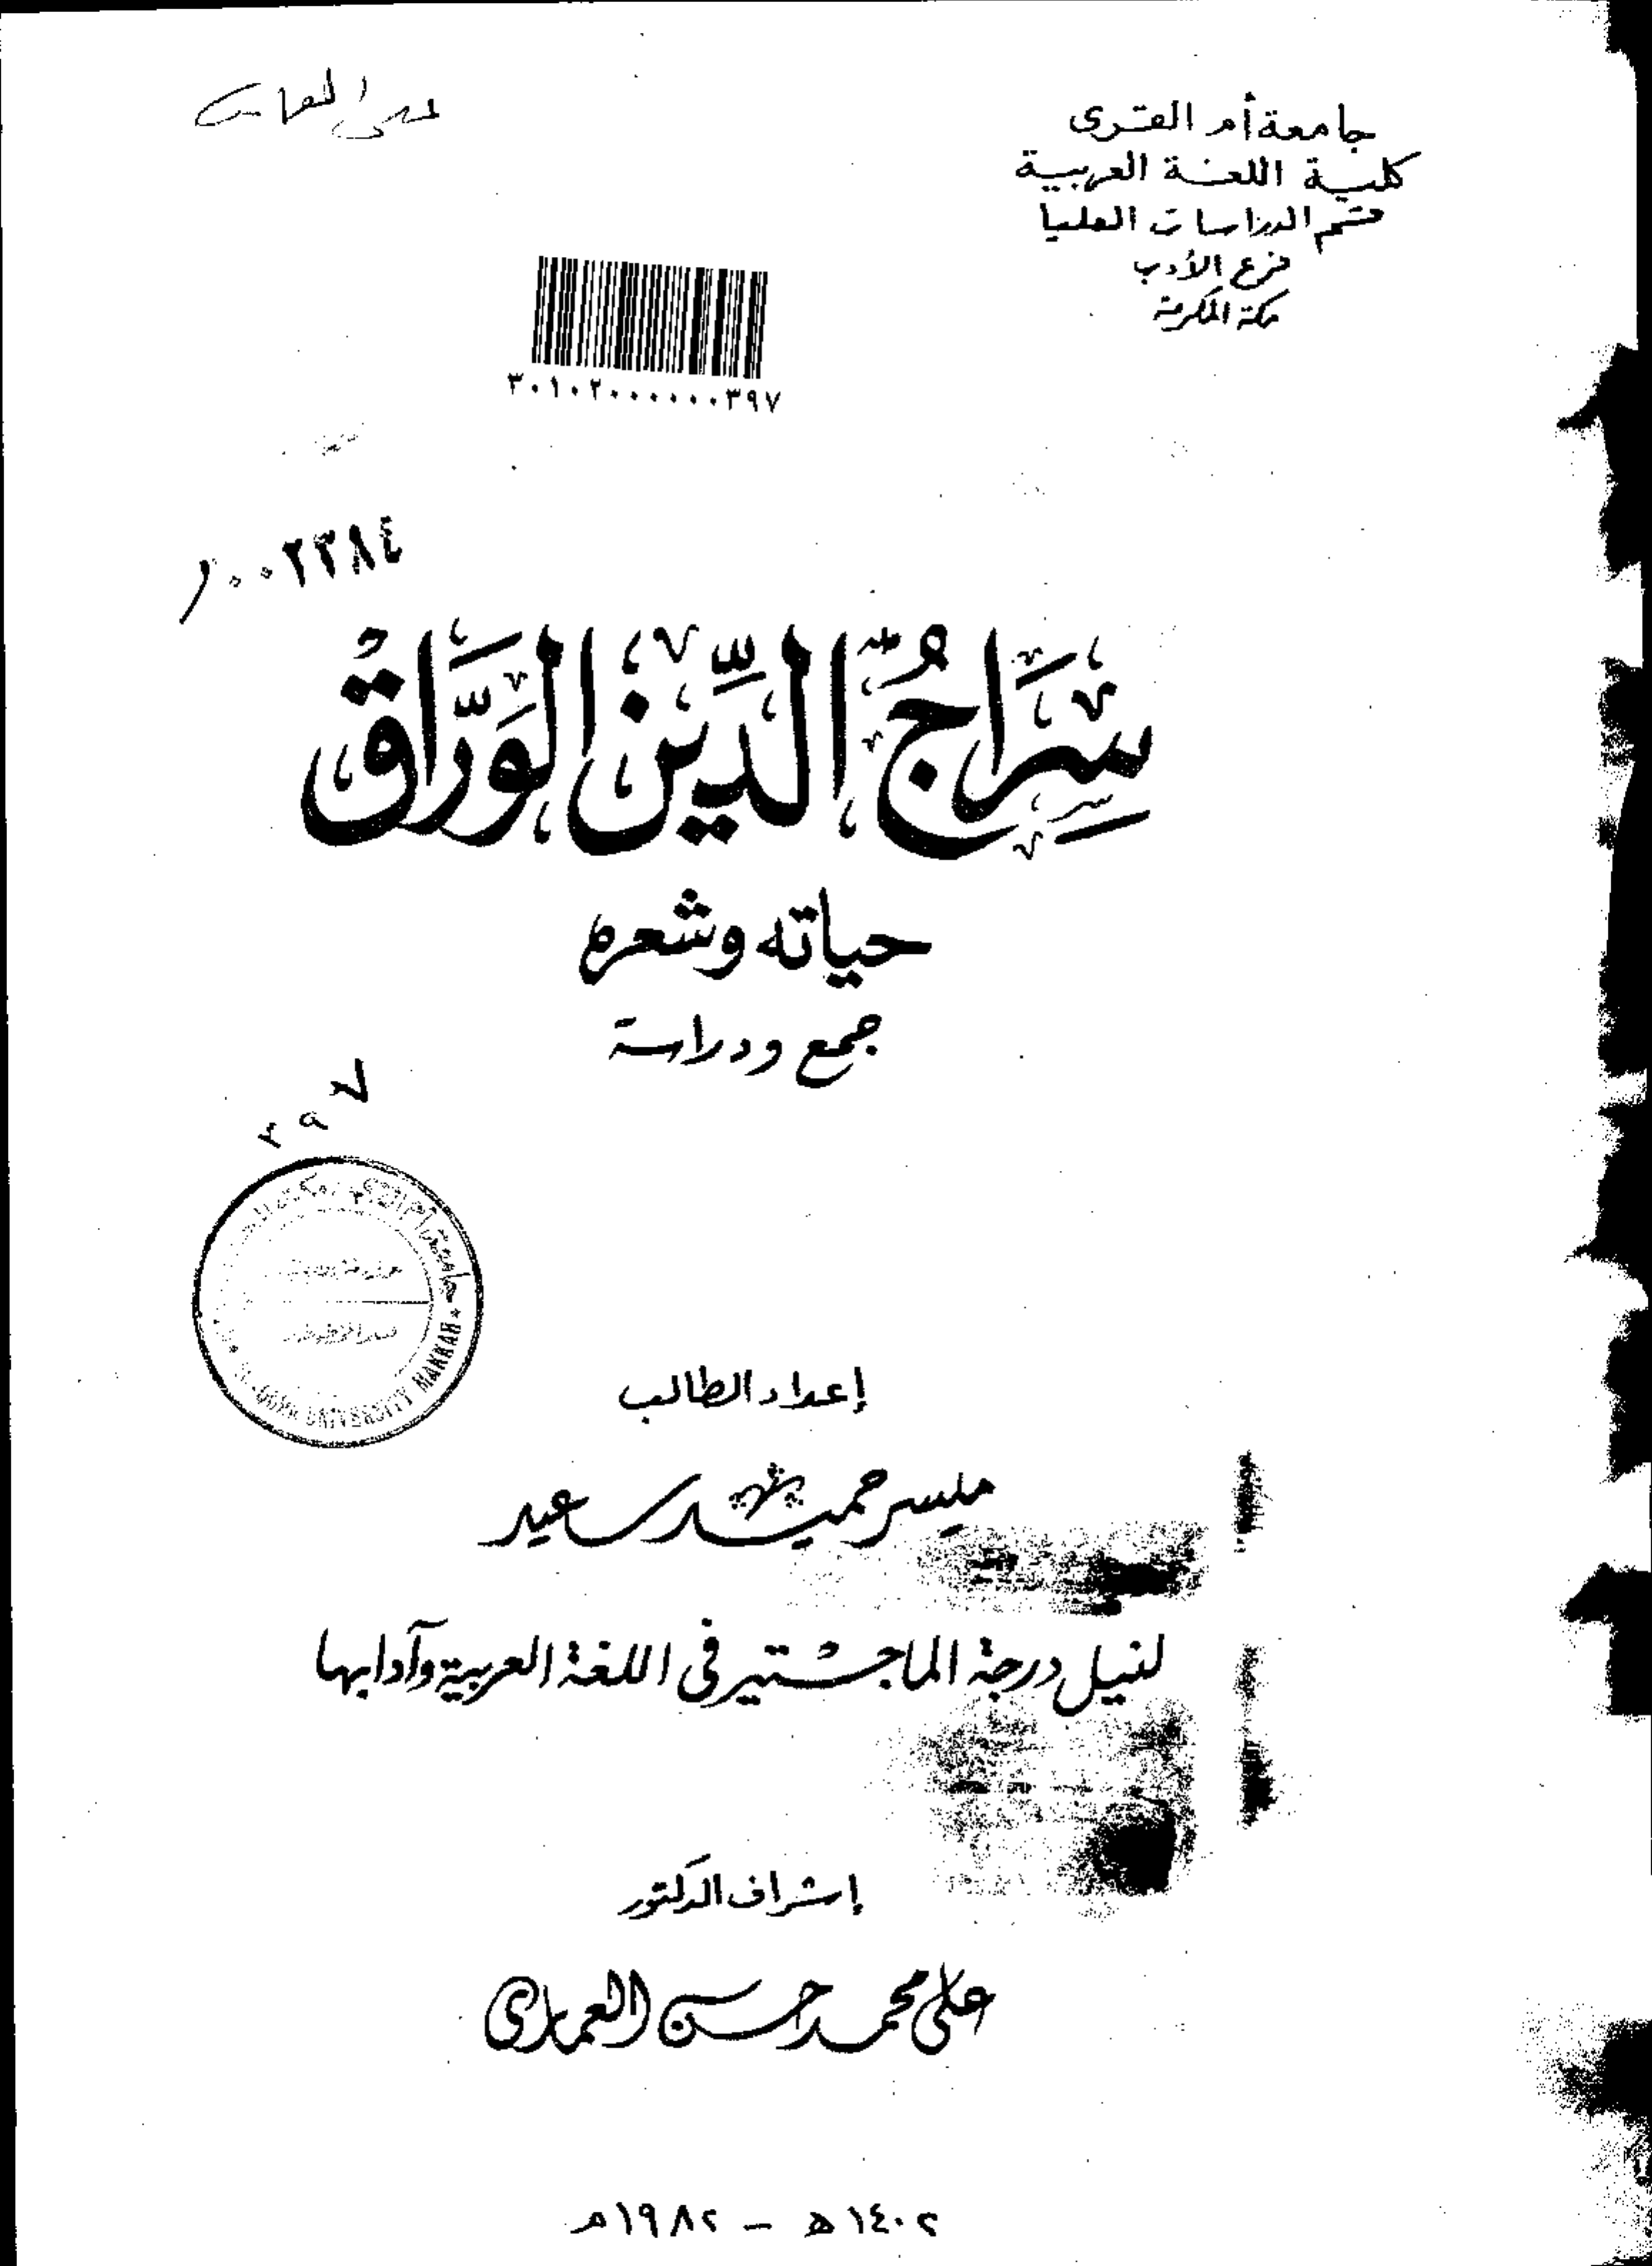 جامعة أم القرى
كلية اللغة العربية
قسم الدراسات العليا
فرع الأدب
مكة المكرمة
٣٠١٠٢٠٠٠٠٠٠٣٩٧
٠٠٢٣٨٤
سِرَاجُ الدِّينِ الوَرَّاقْ
حياته وشعره
جمع ودراسة
٣٩٧
جامعة أم القرى
UNIVERSITY MAKKAH
إعداد الطالب
ميسر حميد سعيد
لنيل درجة الماجستير فى اللغة العربية وآدابها
إشراف الدكتور
على محمد حسن العمارى
١٤٠٢ھ - ١٩٨٢م